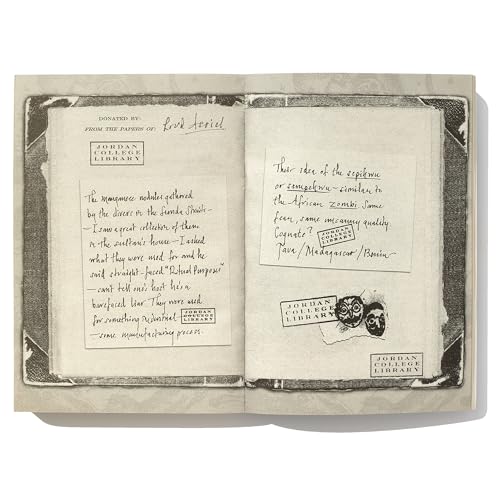 DONATED BY:
FROM THE PAPERS OF: Lord Asriel
JORDAN
COLLEGE
LIBRARY
The manganese nodules gathered
by the divers in the Sunda Straits—
I saw a great collection of them
in the sultan's house—I asked
what they were used for and he
said straight-faced "Ritual Purposes"
—can't tell one's host he's a
barefaced liar. They were used
for something industrial
JORDAN
COLLEGE
LIBRARY
—some manufacturing process.
Their idea of the
or — similar to
the African zombi. Same
fear, same uncanny quality.
Cognate?
JORDAN
COLLEGE
LIBRARY
Java/Madagascar/Benin
JORDAN
COLLEGE
LIBRARY
JORDAN
COLLEGE
LIBRARY